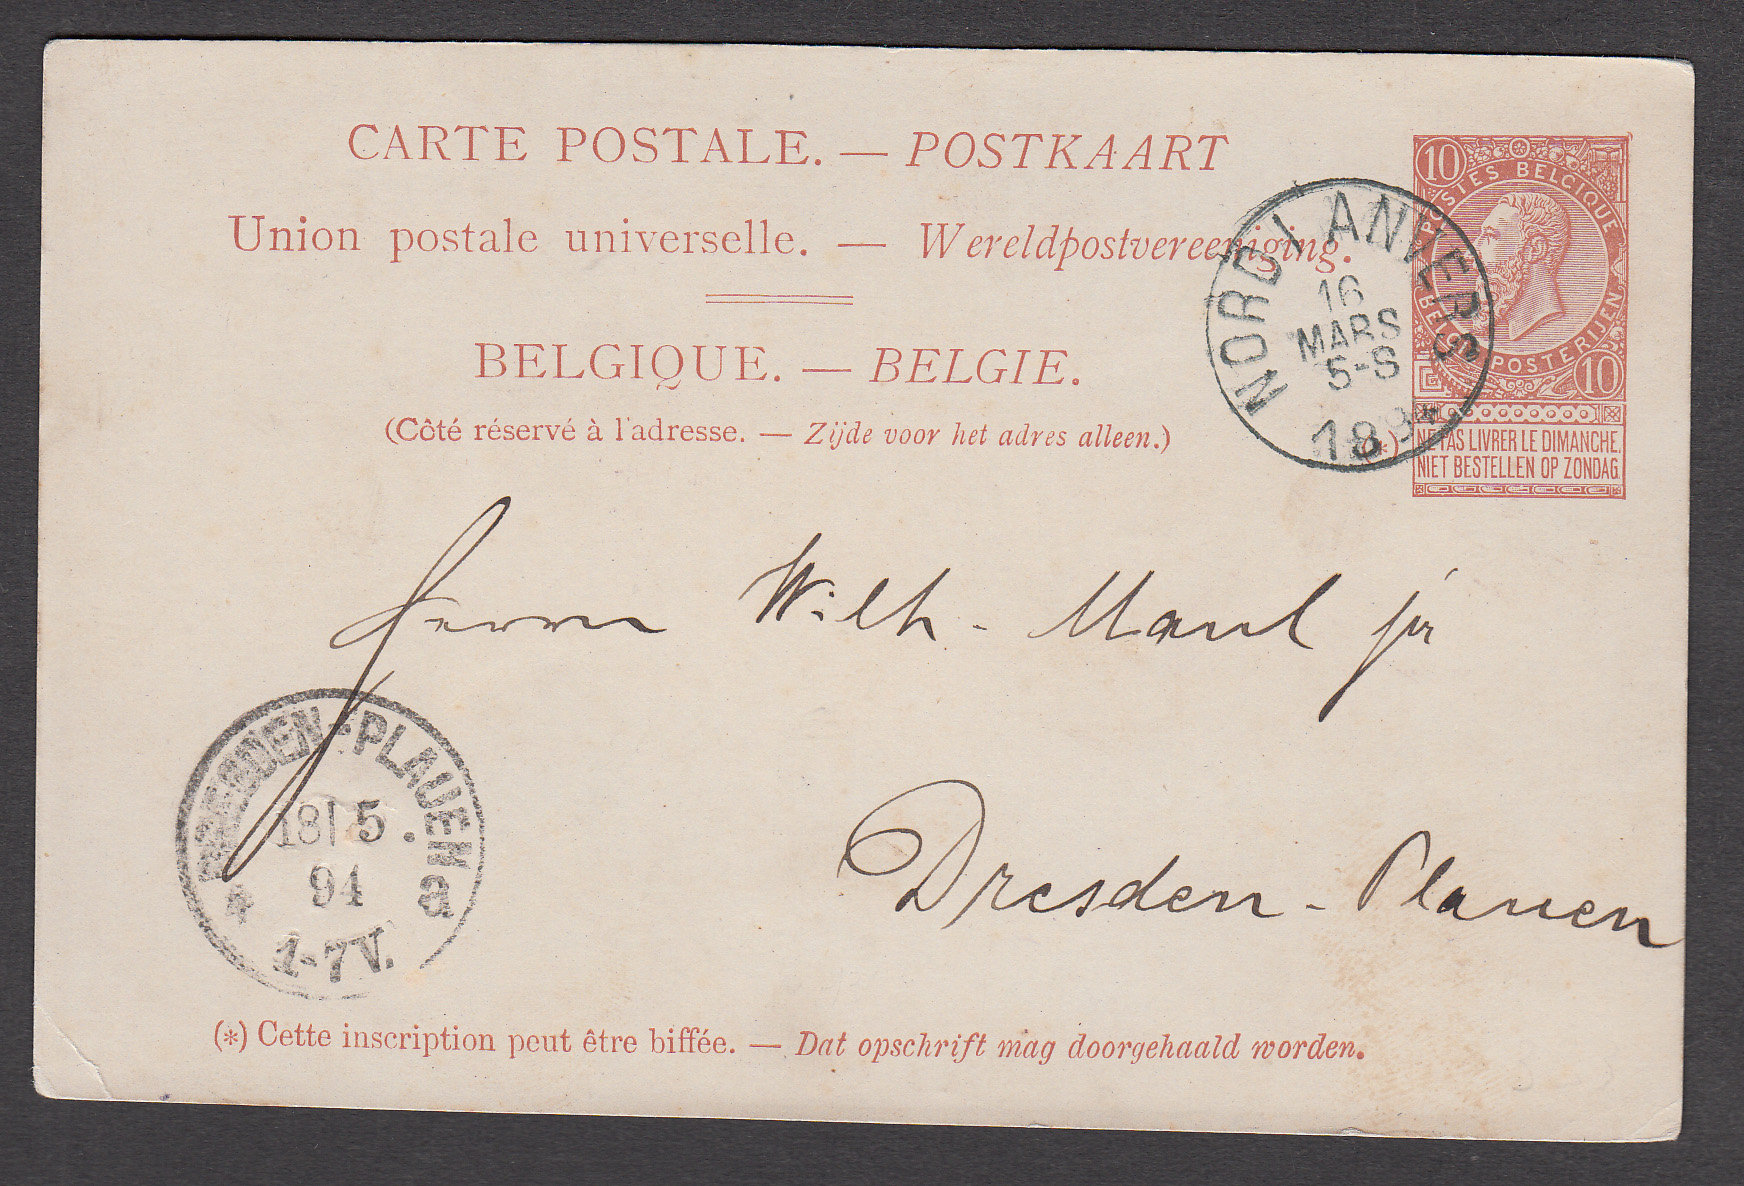 CARTE POSTALE. — POSTKAART
Union postale universelle. — Wereldpostvereeniging.
BELGIQUE. — BELGIE.
(Côté réservé à l'adresse. — Zijde voor het adres alleen.)
10
POSTES BELGIQUE
BELG. POSTERIJEN
10
(*) NE PAS LIVRER LE DIMANCHE.
NIET BESTELLEN OP ZONDAG
NORD ANVERS
16
MARS
5-S
1894
Herrn Wilh. Maul jr
Dresden-Plauen
DRESDEN-PLAUEN
18/5.
94
1-7V.
* a
(*) Cette inscription peut être biffée. — Dat opschrift mag doorgehaald worden.